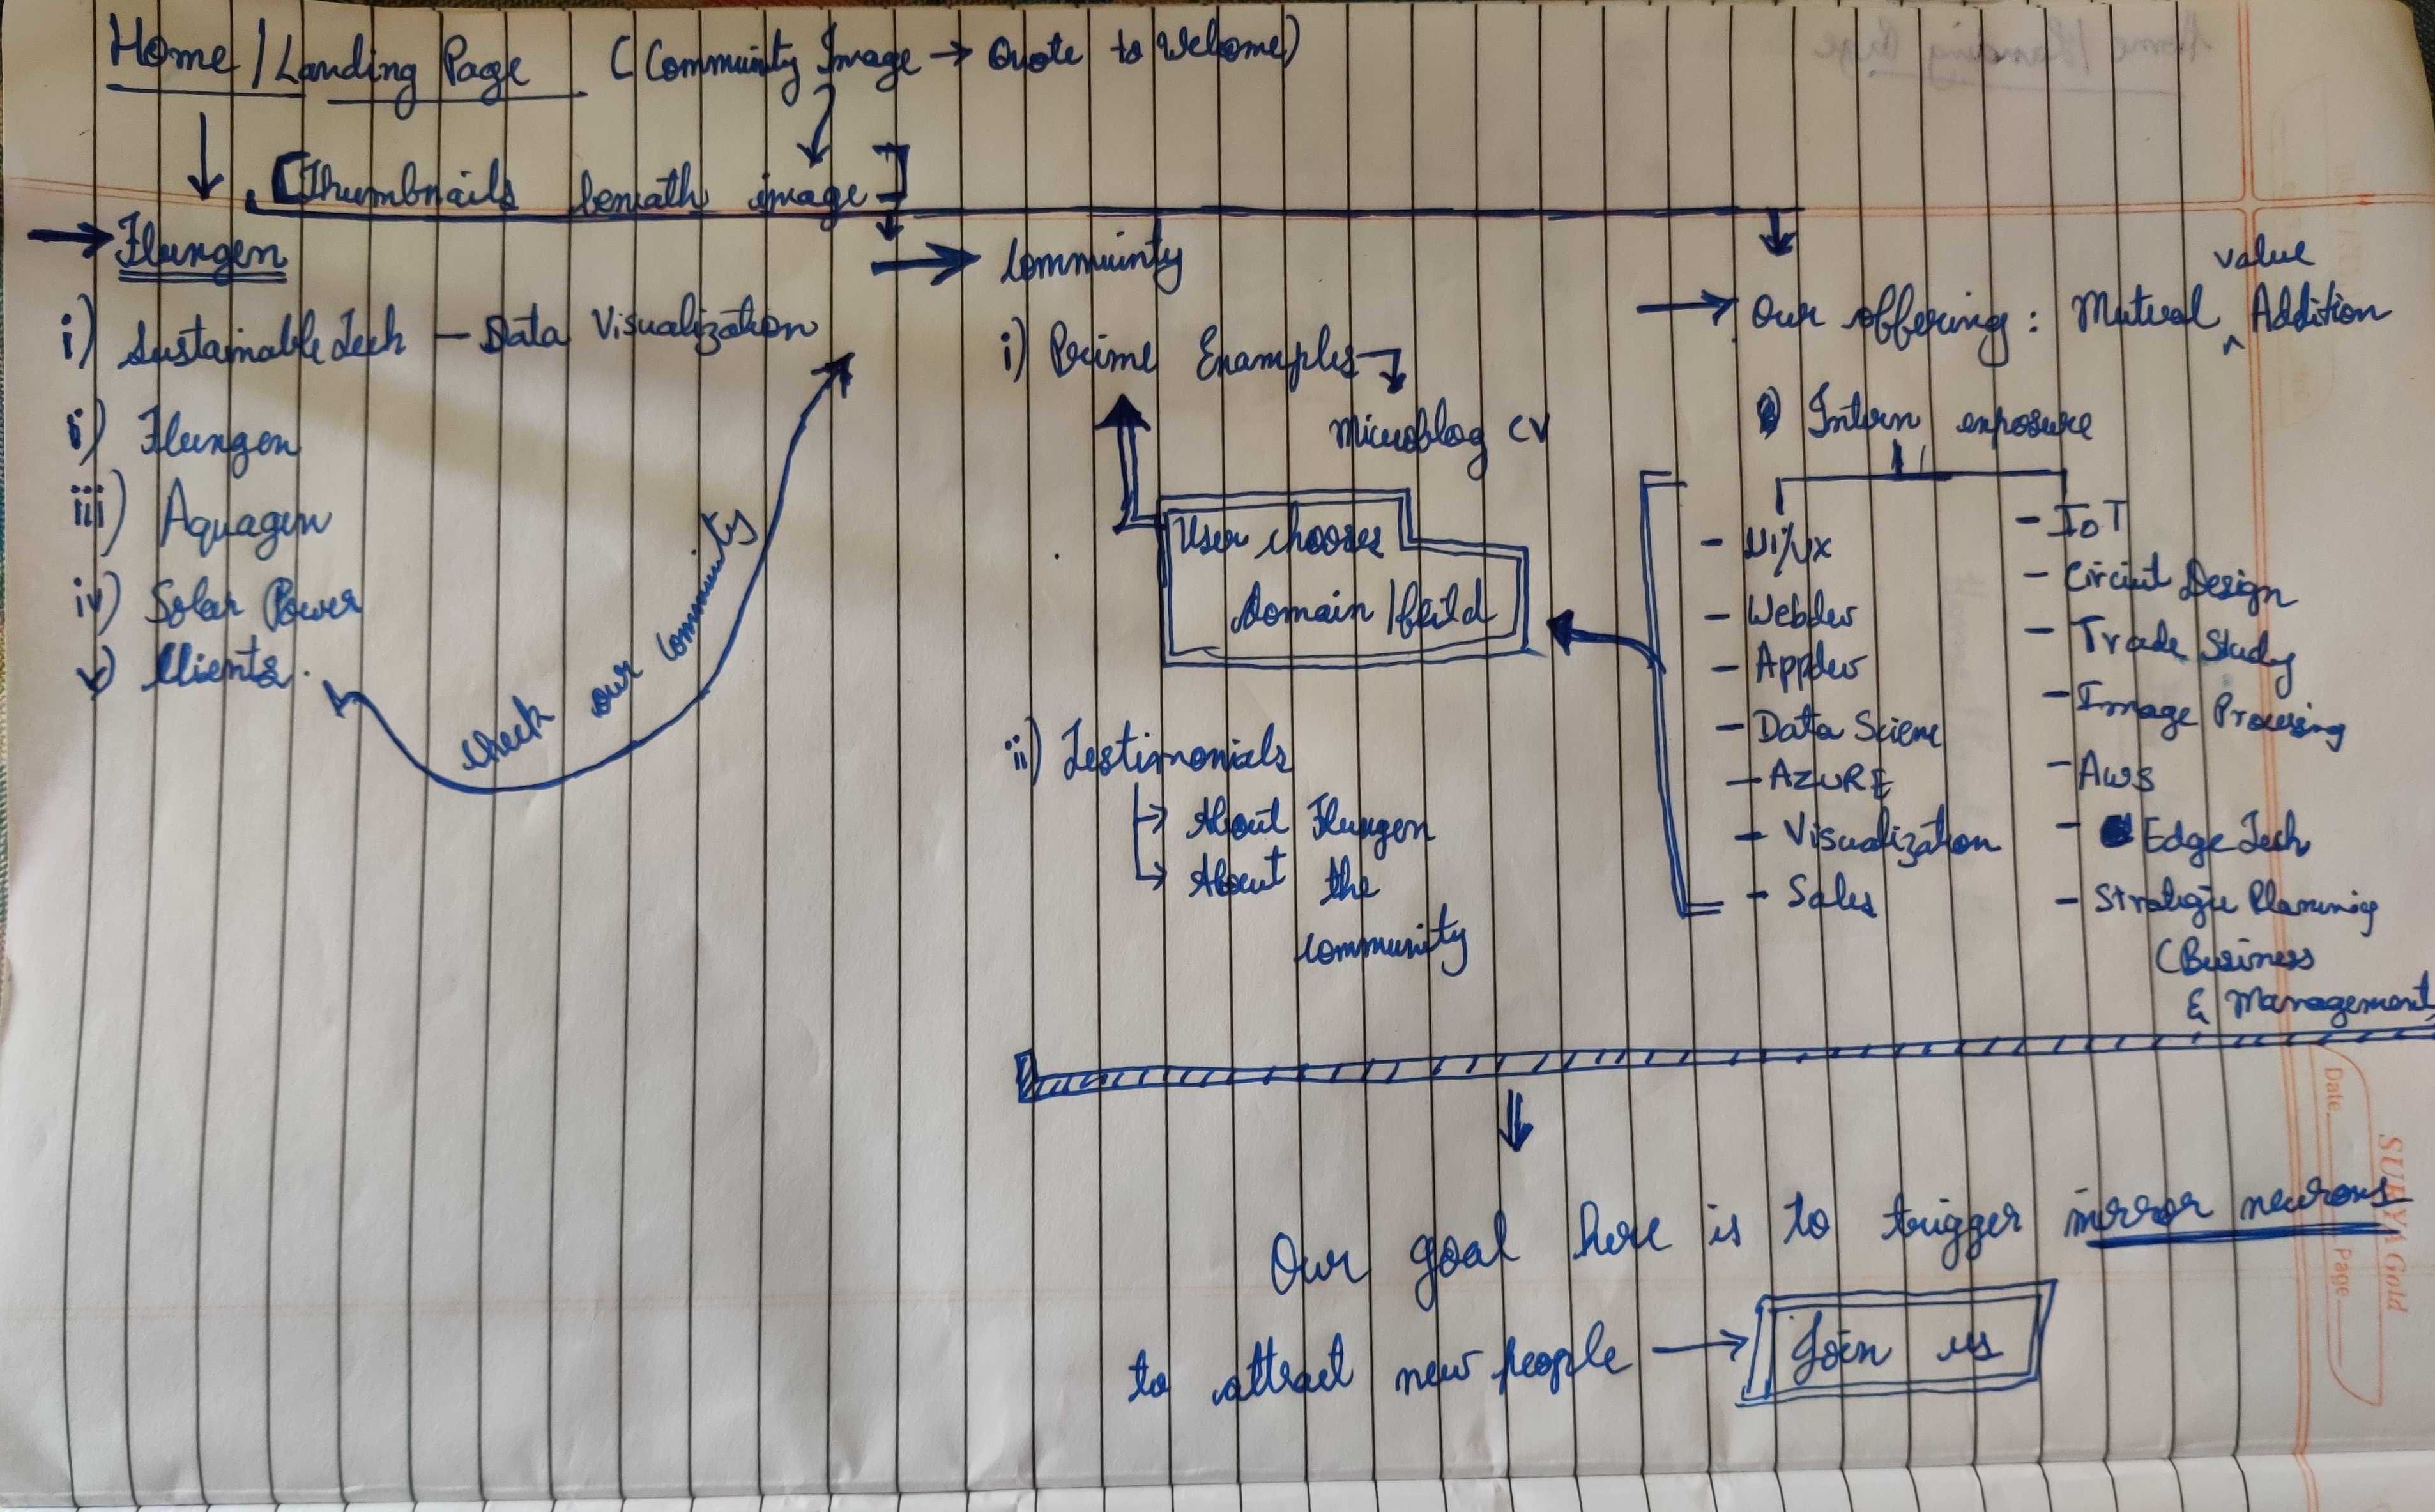 Home / Landing Page (Community Image → Quote to Welcome)
[Thumbnails beneath image]
→ Fluxgen
i) Sustainable Tech – Data Visualization
ii) Fluxgen
iii) Aquagen
iv) Solar Power
v) Clients.
Check our Community
→ Community
i) Prime Examples
Microblog CV
User chooses
domain / feild
ii) Testimonials
→ About Fluxgen
→ About the
community
value
→ Our offering : Mutual ^ Addition
Intern exposure
- UI/UX
- Webdev
- Appdev
- Data Science
- AZURE
- Visualization
- Sales
- IoT
- Circuit Design
- Trade Study
- Image Processing
- AWS
- Edge Tech
- Strategic Planning
(Business
& Management)
Our goal here is to trigger mirror neurons
to attract new people → Join us
SURYA Gold
Date
Page